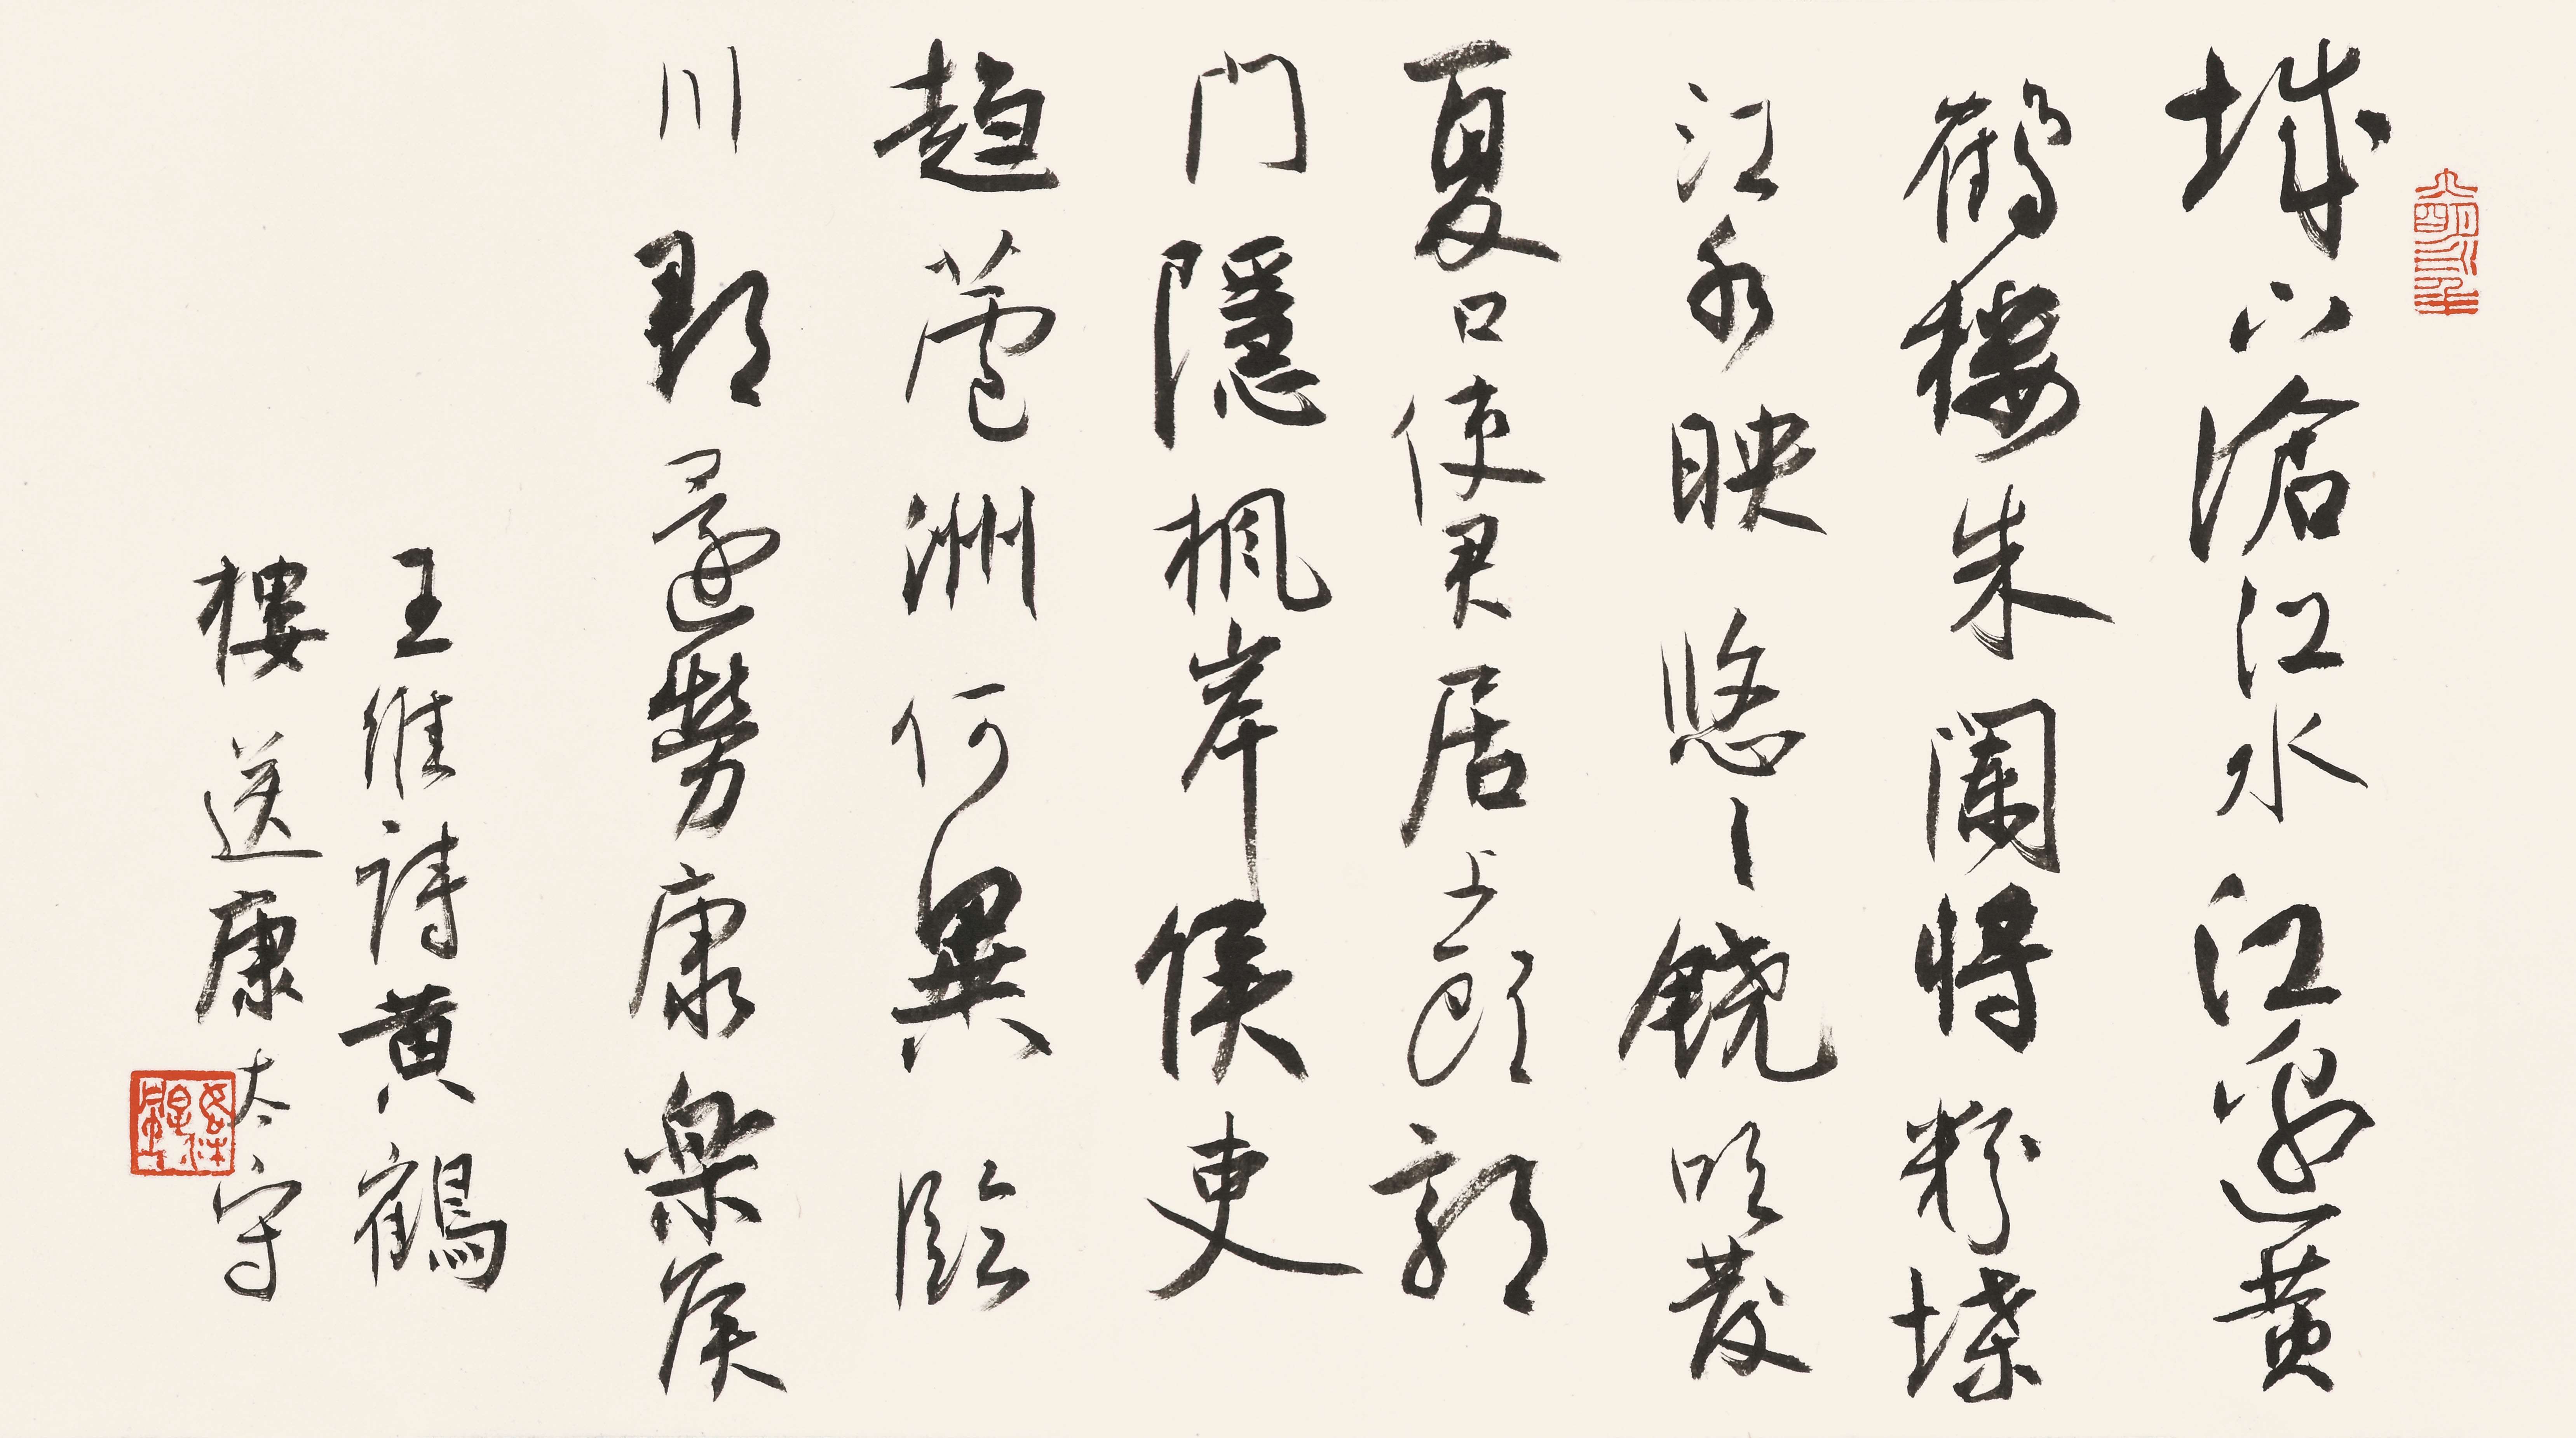 城下滄江水江邊黃
鶴樓朱闌將粉堞
江水映悠〻鐃吹發
夏口使君居上頭郭
門隱楓岸候吏
趨蘆洲何異臨
川郡還勞康樂侯
王維詩黃鶴
樓送康太守